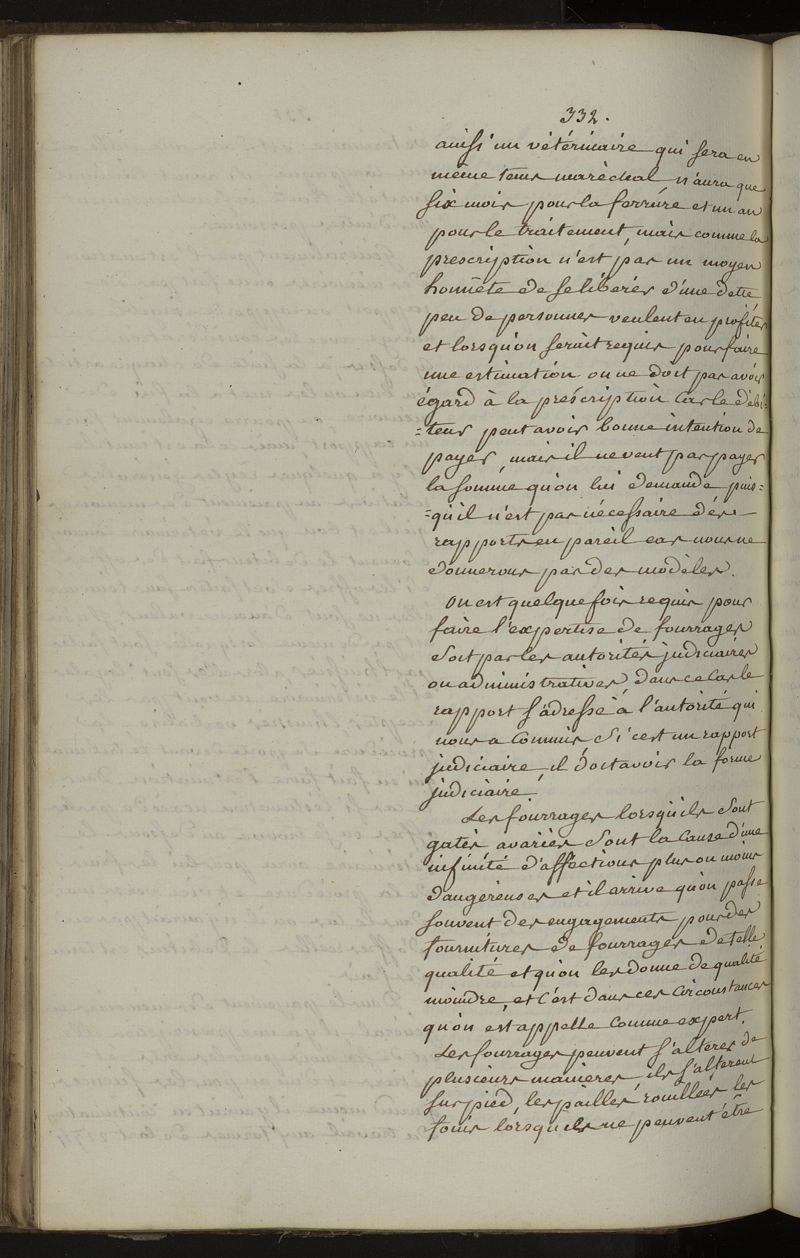 332.
ainsi un vétérinaire qui sera en
même tems maréchal n'aura que
six mois pour la ferrure et un an
pour le traitement, mais comme la
prescription n'est pas un moyen
honnête de se libérer d'une dette
peu de personnes veulent en profiter
et lorsqu'on serait requis pour faire
une estimation on ne doit pas avoir
égard à la prescription car le débi=
=teur peut avoir bonne intention de
payer, mais il ne veut pas payer
la somme qu'on lui demande puis=
=qu'il n'est pas nécessaire des
rapports en pareil cas nous ne
donnerons pas des modèles.
On est quelque fois requis pour
faire l'expertise de fourrages
soit par les autorités judiciaires
ou administratives, dans ce cas le
rapport s'adresse à l'autorité qui
nous a commis si c'est un rapport
judiciaire, il doit avoir la forme
judiciaire.
Les fourrages lorsqu'ils sont
gatés avariés sont la cause d'une
infinité d'affections plus ou moins
dangereuses et il arrive qu'on passe
souvent des engagements pour des
fournitures de fourrages de telle
qualité et qu'on les donne de qualité
moindre, et c'est dans ces circonstances
qu'on est appellé comme expert.
Les fourrages peuvent s'altérer de
plusieurs manières, ils s'altèrent
sur pied, les pailles rouillées, les
foins lorsqu'ils ne peuvent être